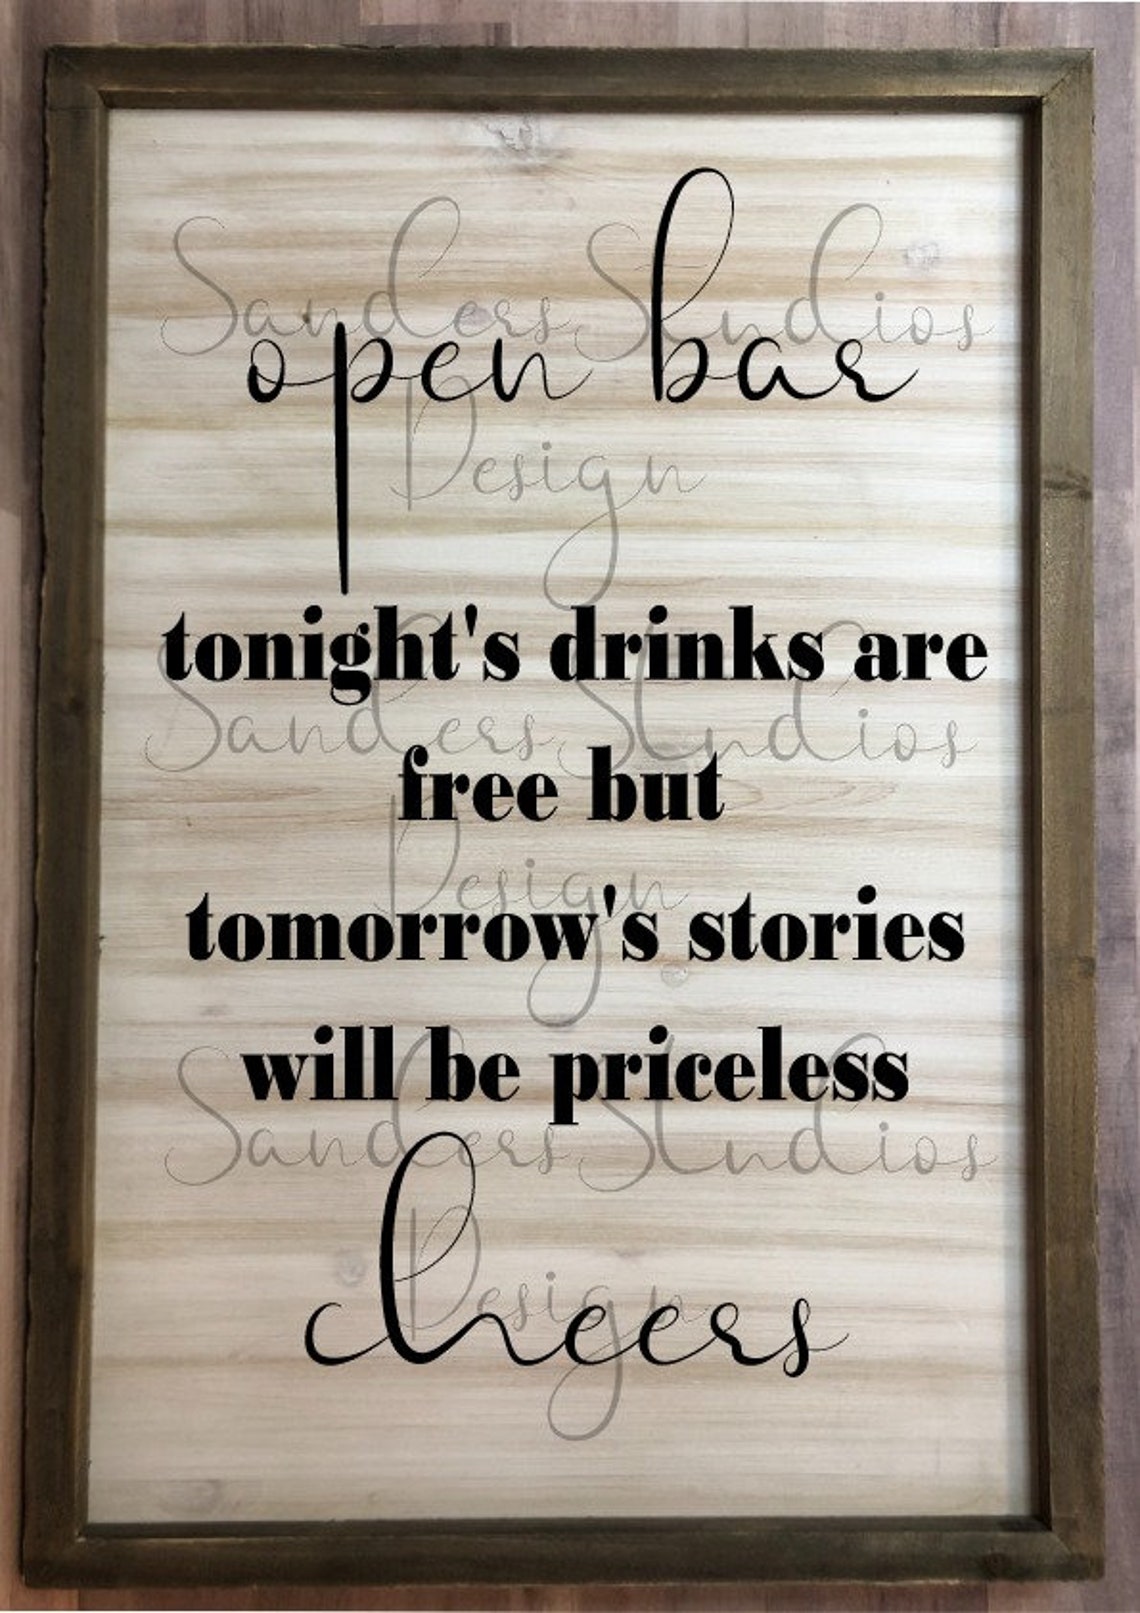 Sanders Studios
open bar
Design
tonight's drinks are
Sanders Studios
free but
Design
tomorrow's stories
will be priceless
Sanders Studios
Design
cheers